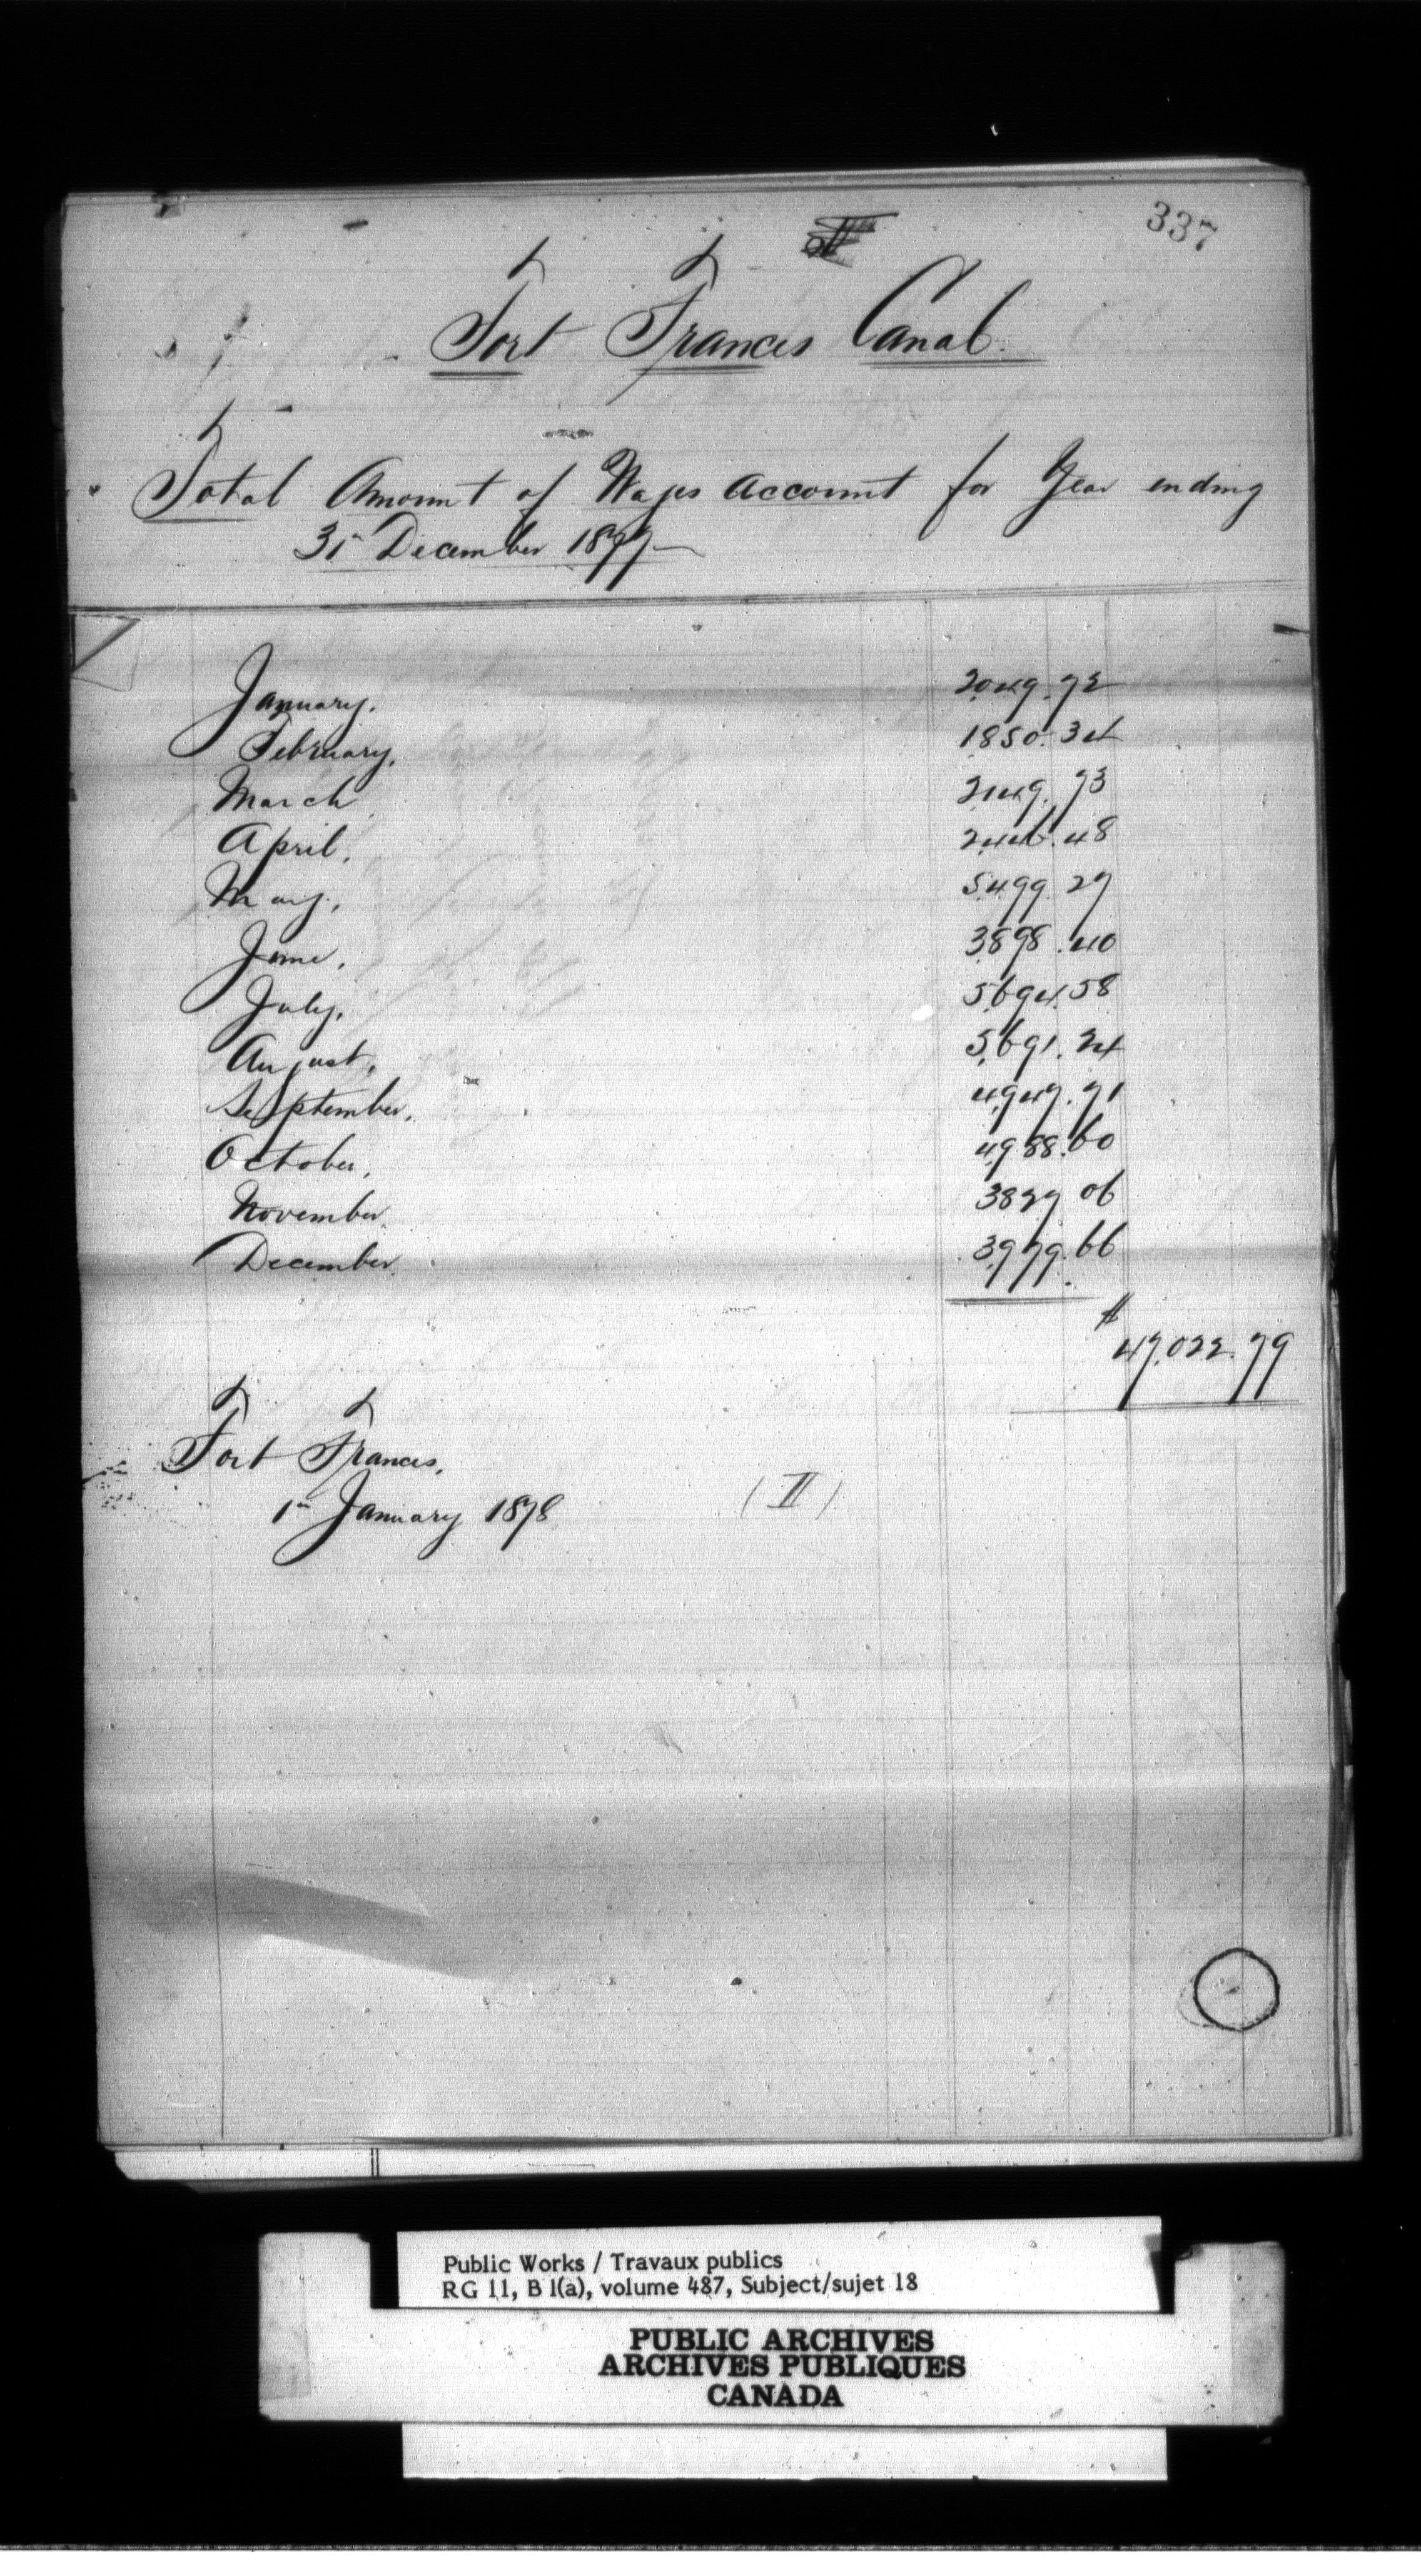 337
Fort Frances Canal.
Total Amount of Wages Account for Year ending
31st December 1877
January. 2049.72
February. 1850.34
March 2149.73
April. 2446.48
May. 5499.27
June. 3898.40
July. 5694.58
August. 5691.24
September. 4947.71
October. 4988.60
November. 3827 06
December. 3979.66
$
47.022.79
Fort Frances,
1st January 1878
(II)
Public Works / Travaux publics
RG 11, B 1(a), volume 487, Subject/sujet 18
PUBLIC ARCHIVES
ARCHIVES PUBLIQUES
CANADA